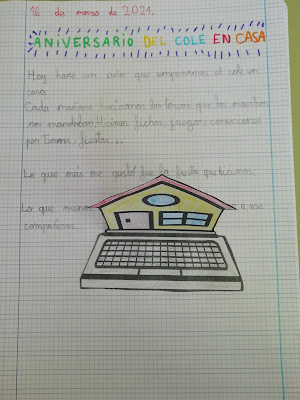 16 de marzo de 2021.
ANIVERSARIO DEL COLE EN CASA
Hoy hace un año que empezamos el cole en
casa.
Cada mañana hacíamos las tareas que los maestros
nos mandaban. Hicimos fichas, juegos, conexiones
por Teams, fiestas...
Lo que más me gustó fue la fiesta que hicimos.
Lo que menos a mis
compañeros.